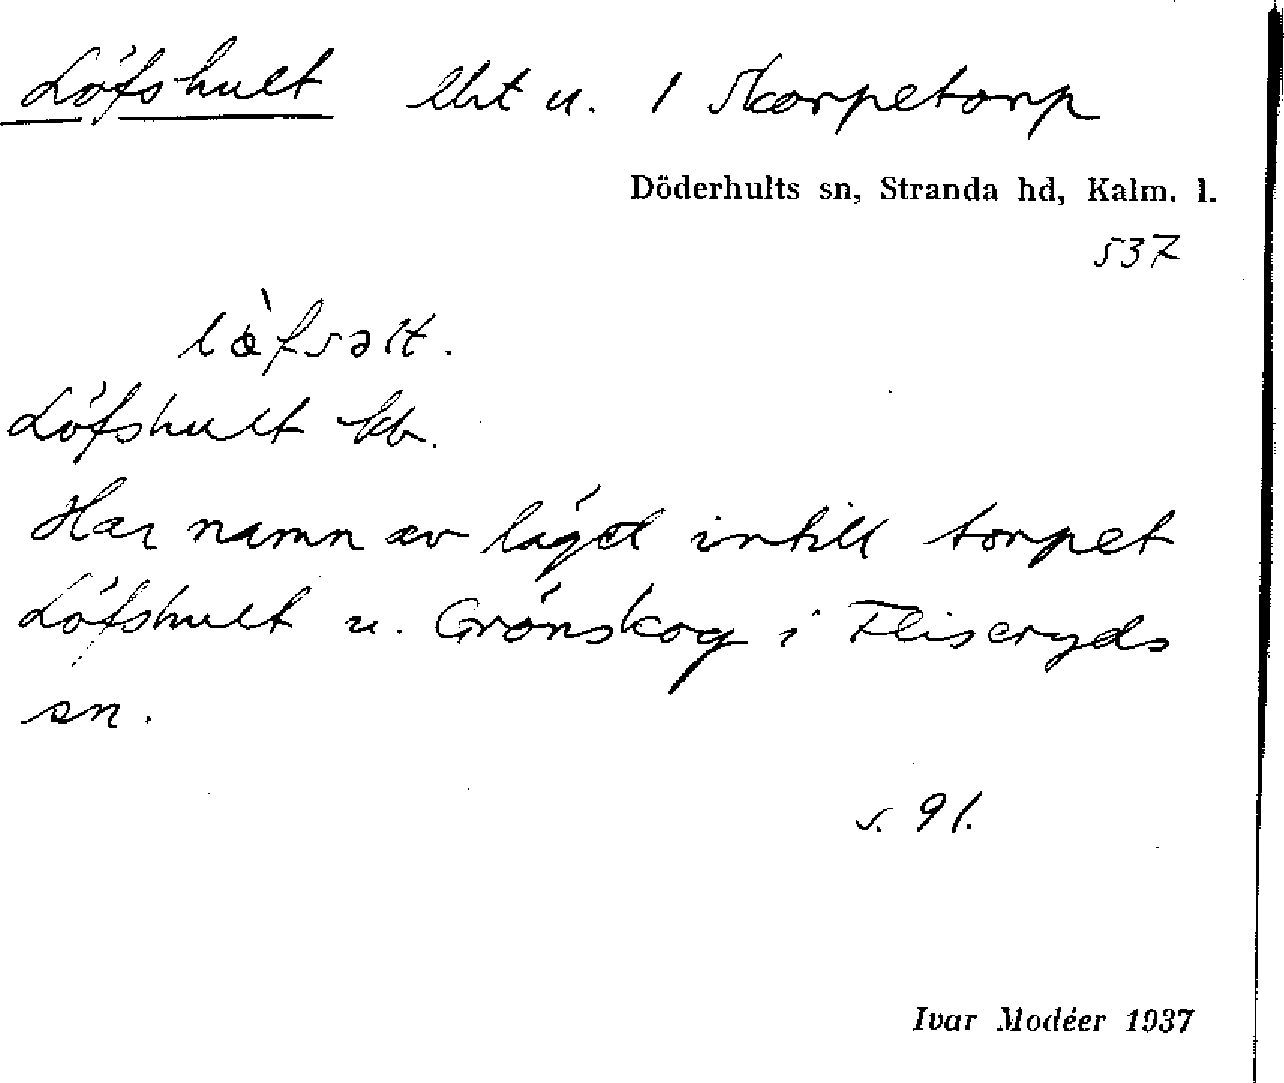 Löfshult lht u. 1 Skorpetorp
Döderhults sn, Stranda hd, Kalm. l.
537
lœ̀fsəlt.
Löfshult kb.
Har namn av läget intill torpet
Löfshult u. Grönskog i Fliseryds
sn.
s. 91.
Ivar Modéer 1937